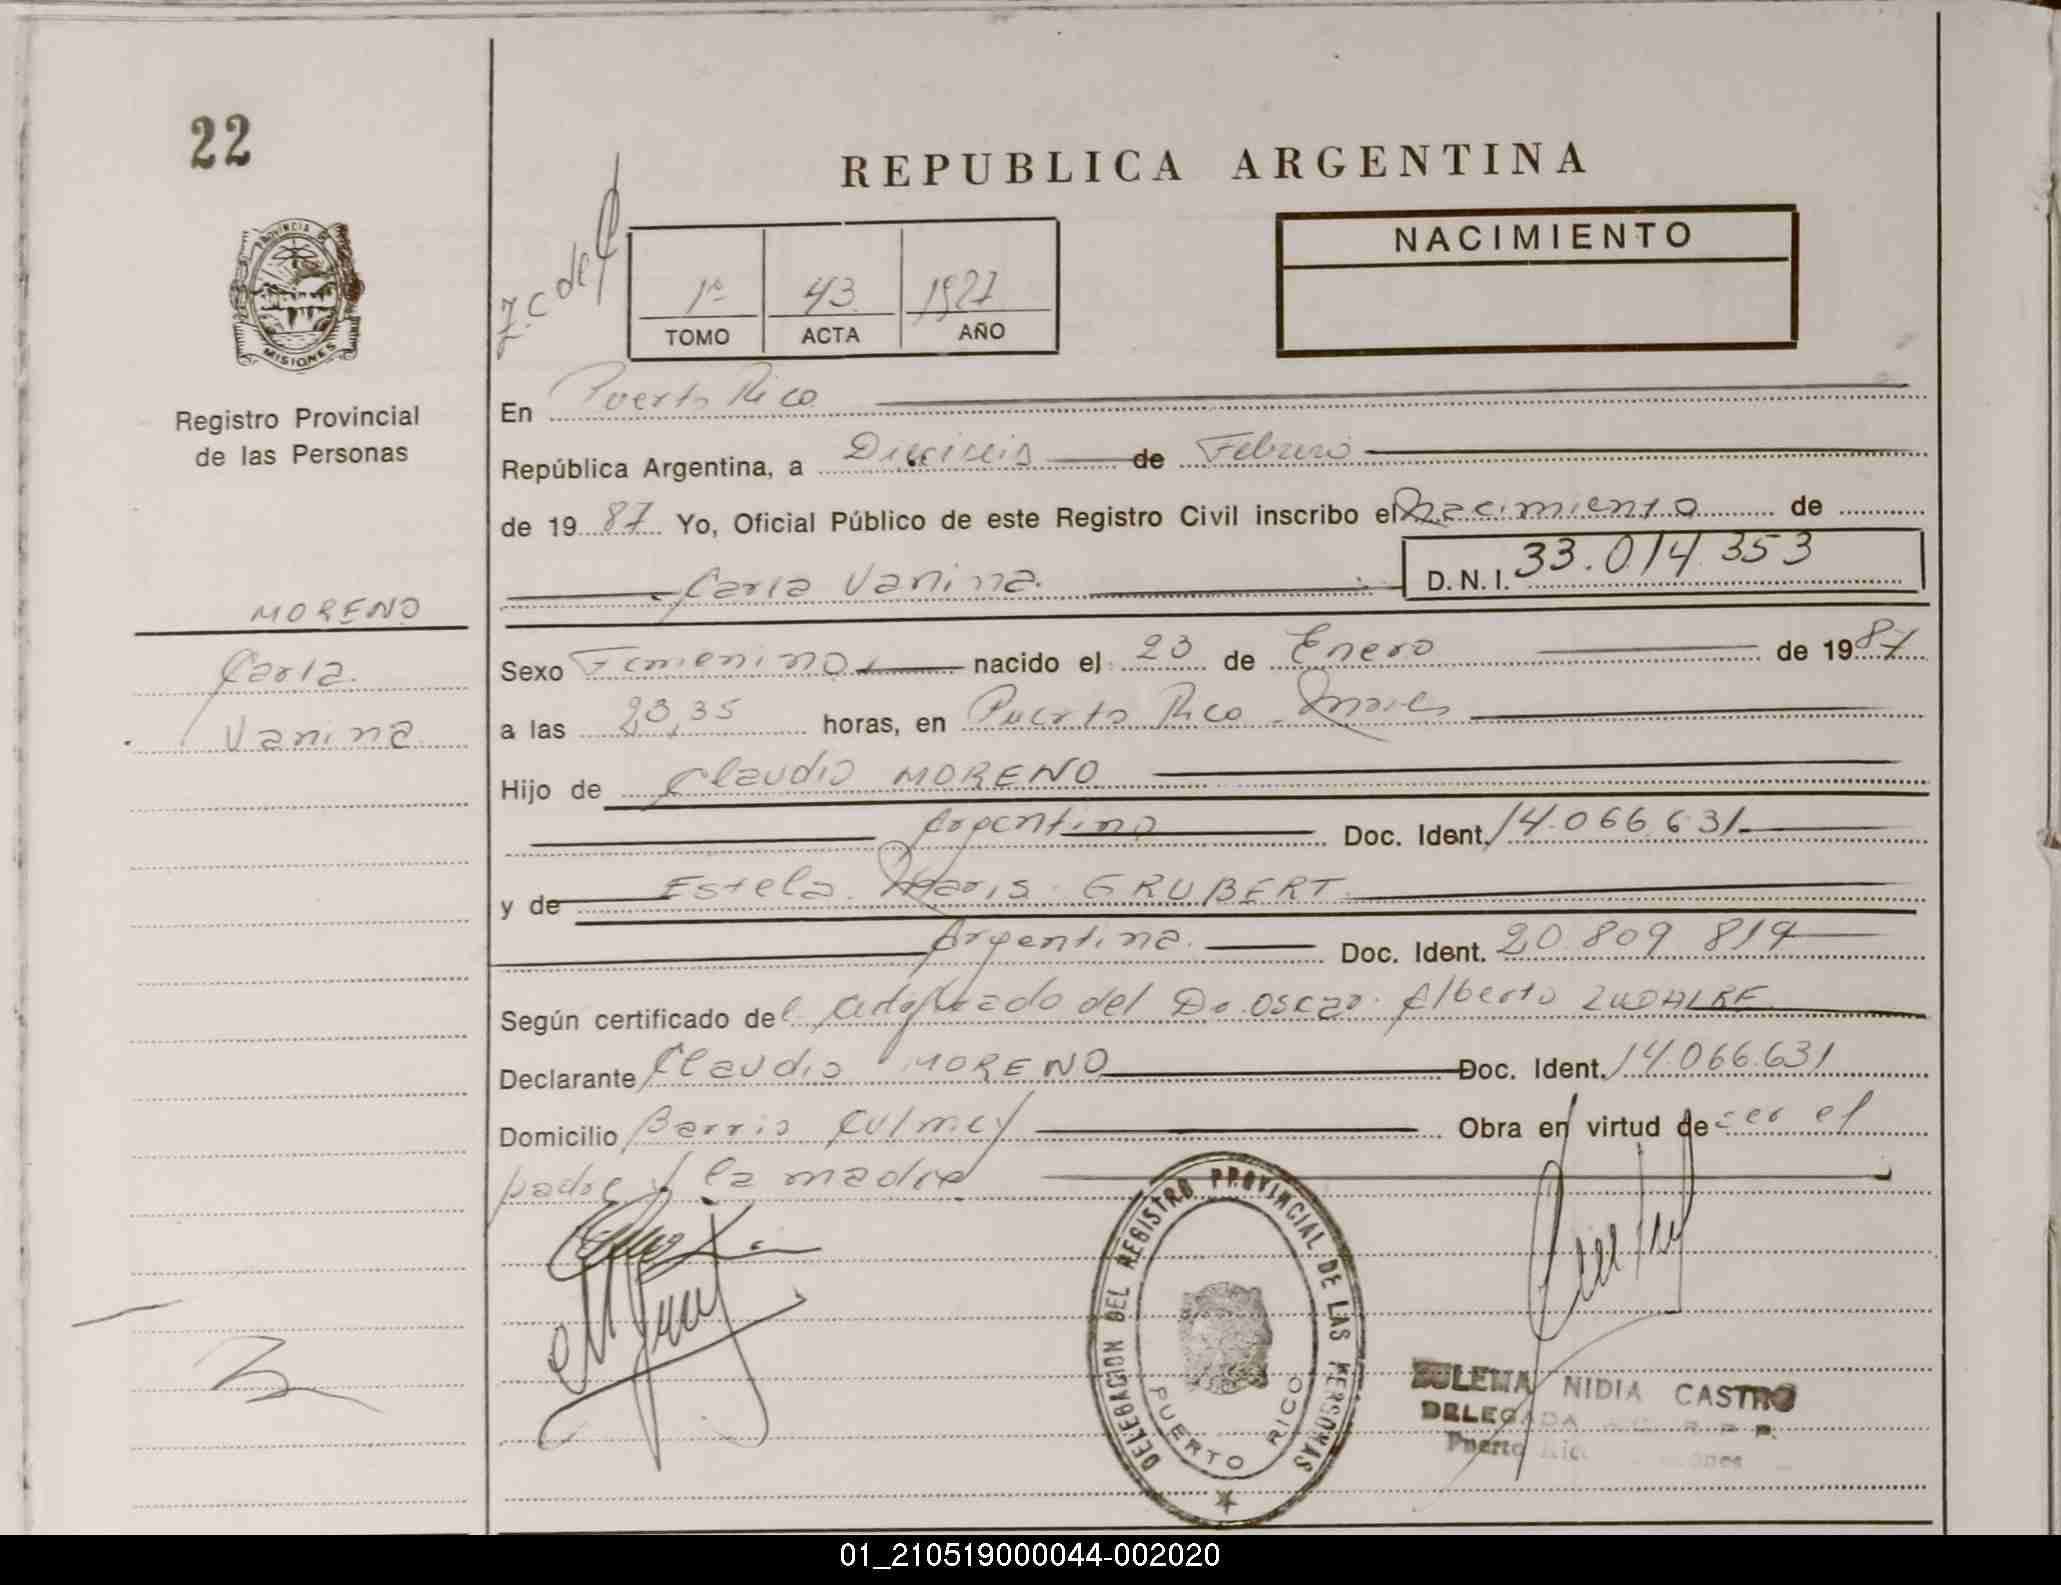 22
REPUBLICA ARGENTINA
NACIMIENTO
1º 43 1987
TOMO ACTA AÑO
PROVINCIA DE
MISIONES
Registro Provincial
de las Personas
En Puerto Rico
República Argentina, a Dieciseis de Febrero
de 1987 Yo, Oficial Público de este Registro Civil inscribo el Nacimiento de
Carla Vanina. D.N.I. 33.014.353
MORENO
Carla
Vanina
Sexo Femenino nacido el 23 de Enero de 1987
a las 23,35 horas, en Puerto Rico - Mnes
Hijo de Claudio MORENO
Argentino Doc. Ident. 14.066.631
y de Estela Maris GRUBERT
Argentina. Doc. Ident. 20.809.819
Según certificado del del Dr. Oscar Alberto
Declarante Claudio MORENO Doc. Ident. 14.066.631
Domicilio Barrio Culmey Obra en virtud de ser el
padre y la madre
DELEGACION DEL REGISTRO PROVINCIAL DE LAS PERSONAS
PUERTO RICO
ZULEMA NIDIA CASTRO
DELEGADA R. P. P.
Puerto Rico
01_210519000044-002020